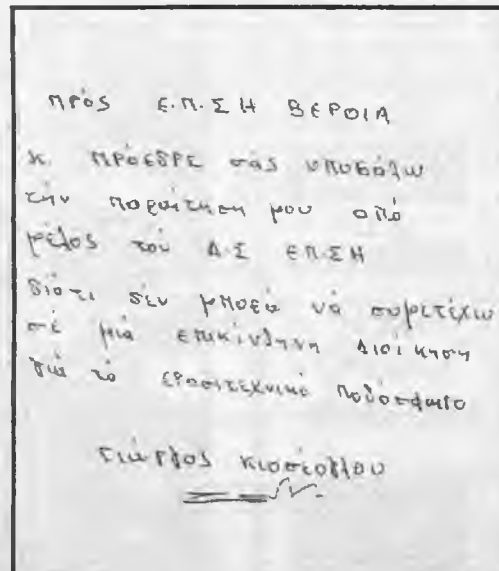 ΠΡΟΣ Ε.Π.Σ Η ΒΕΡΟΙΑ
Κ. ΠΡΟΕΔΡΕ σάς υποβάλω
τήν παραίτηση μου από
μέλος τού Δ.Σ ΕΠ.ΣΗ
διότι δέν μπορώ νά συμετέχω
σέ μιά επικίνδηνη Διοίκηση
γιά τό ερασιτεχνικό ποδόσφαιρο
Γιώργος Κιοσέογλου